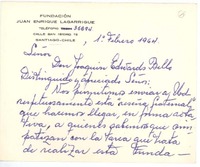 FUNDACIÓN
JUAN ENRIQUE LAGARRIGUE
TELÉFONO
CALLE SAN ISIDRO 75
SANTIAGO-CHILE
1º Febrero 1964.
Señor
Don Joaquín Edwards Bello
Distinguido y apreciado Señor:
Nos permitimos enviar a Ud.
respetuosamente esta "reseña fraternal"
que hacemos llegar en forma selec
tiva, a quienes sabemos que com
patizan con la tarea que trata
de realizar esta Funda—